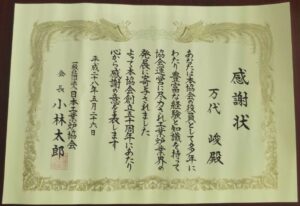 感謝状
万代 峻 殿
あなたは本協会の役員として多年に
わたり豊富な経験と知識を持って
協会運営に尽力され工業炉業界の
発展に寄与されました
よって本協会創立五十周年にあたり
心から感謝の意を表します
平成二十八年五月二十六日
一般社団法人日本工業炉協会
会長 小林太郎